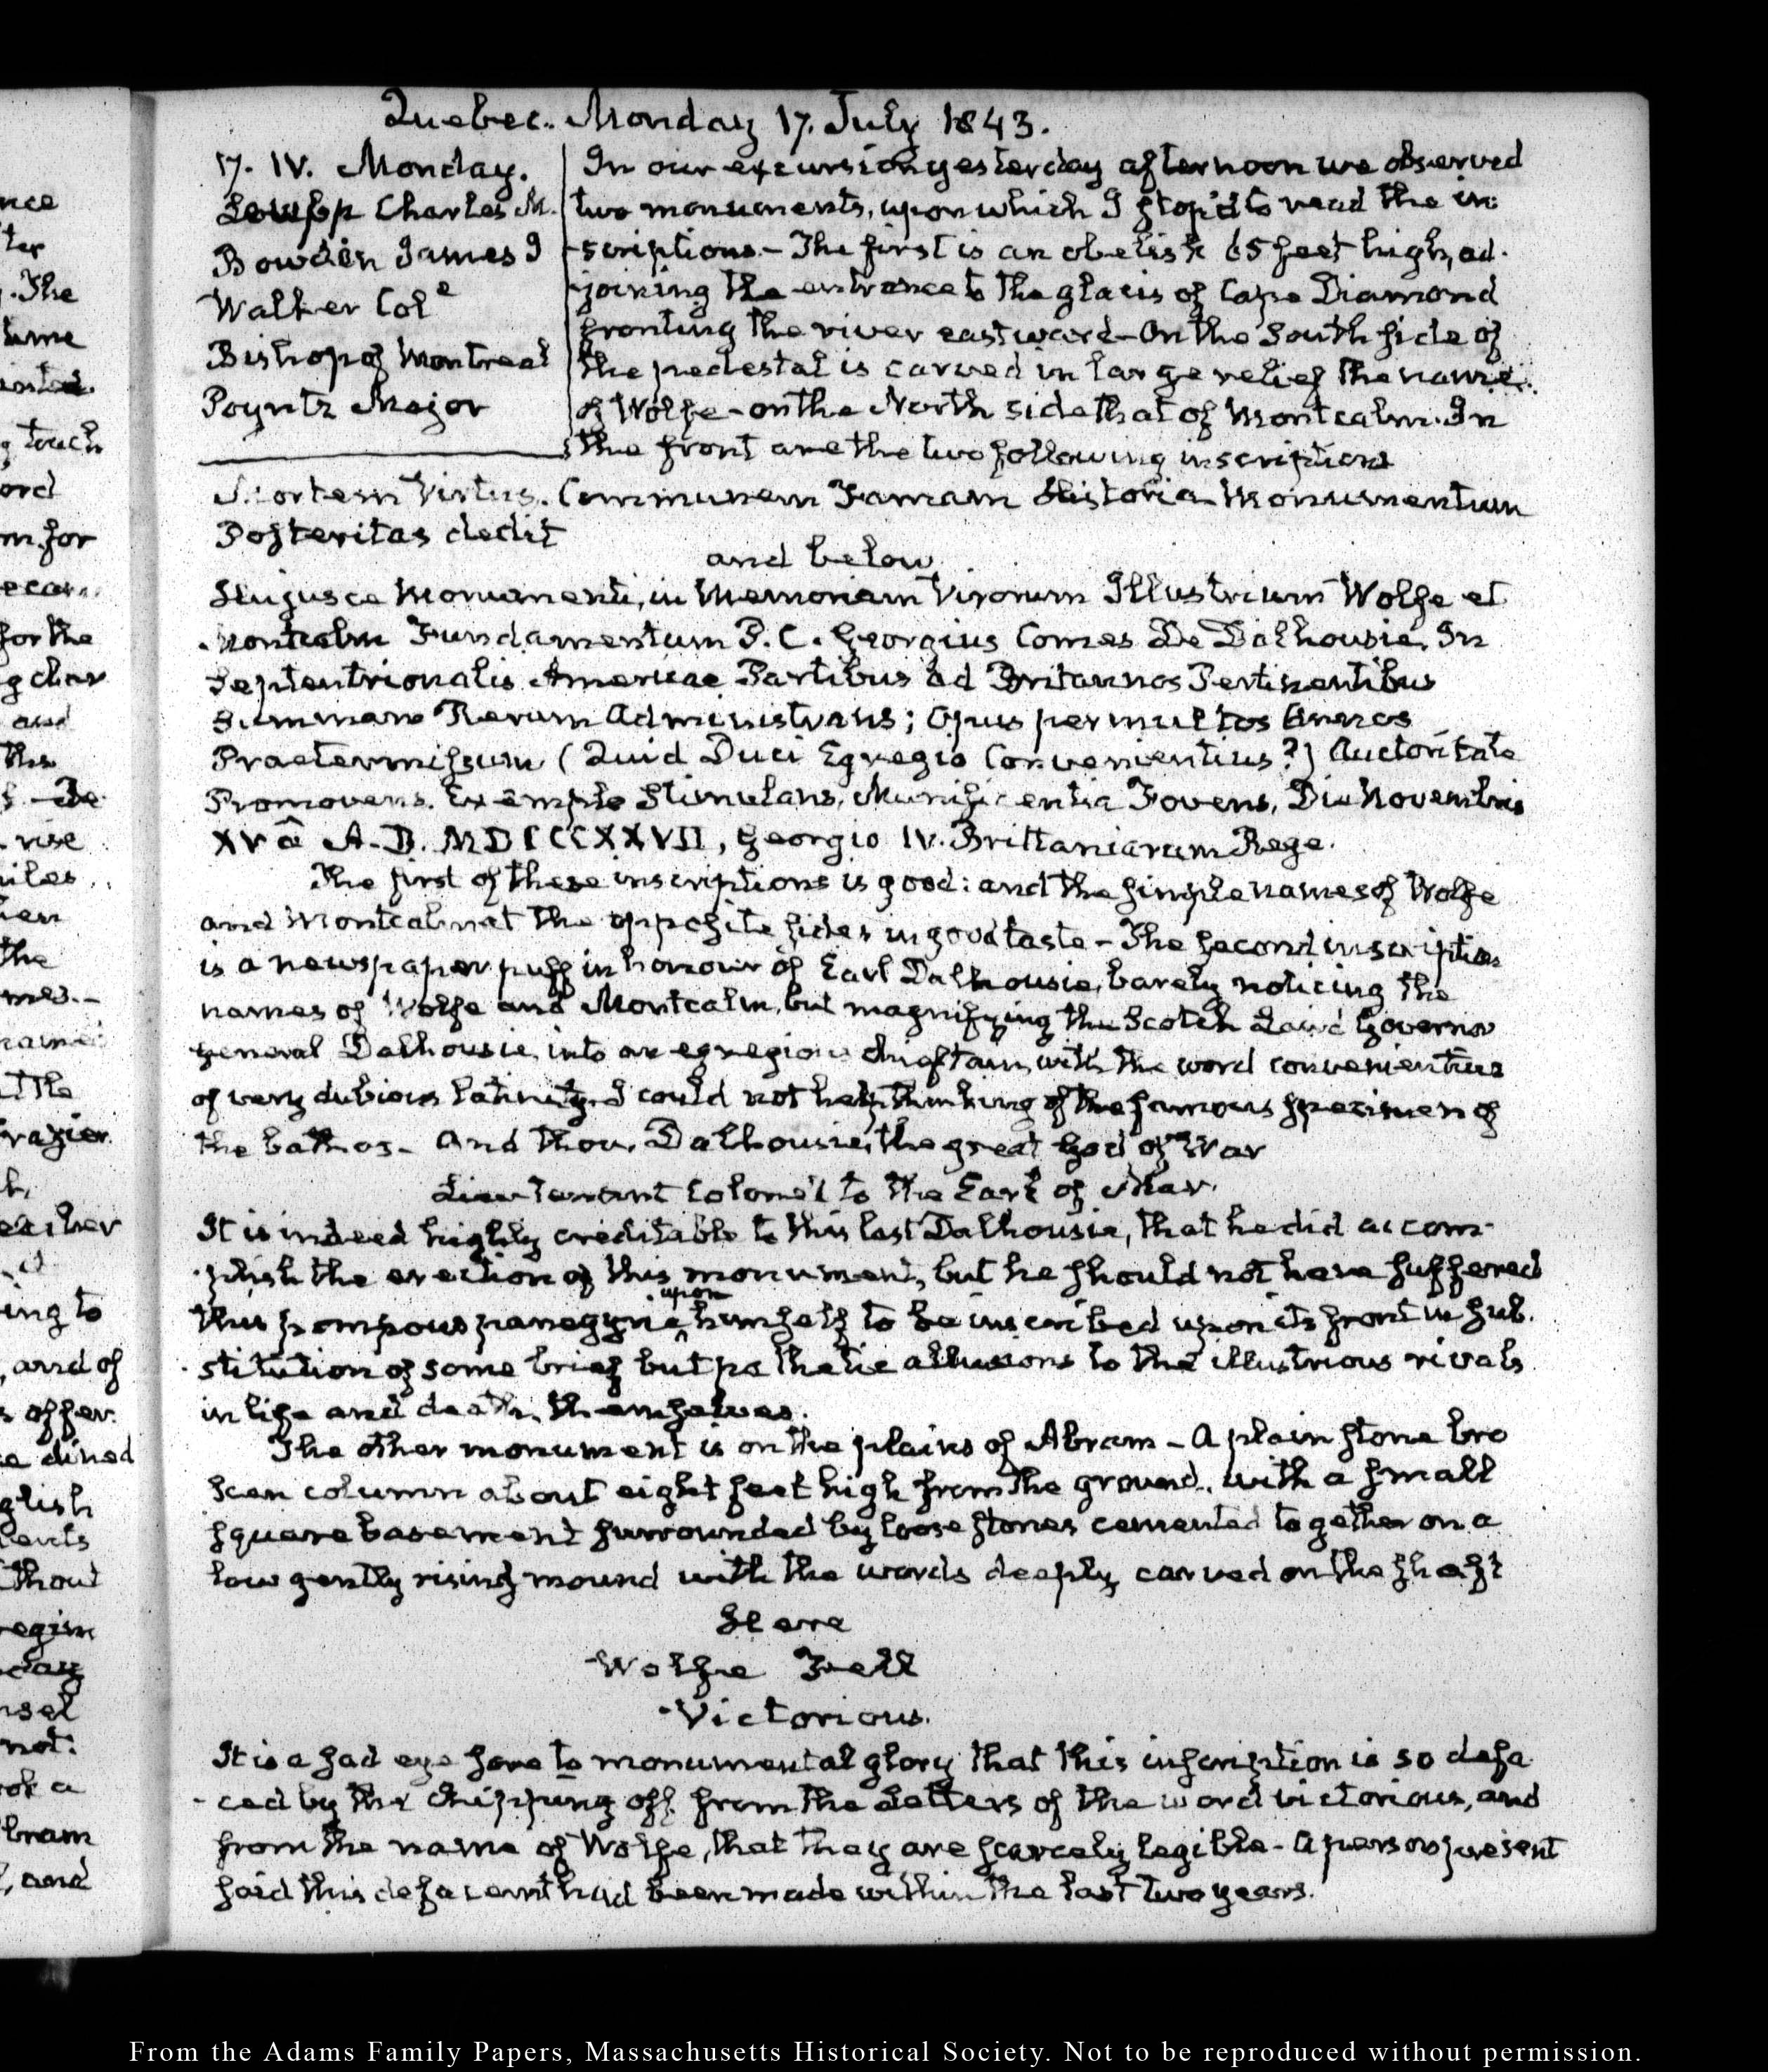 Quebec. Monday 17. July 1843.
17. IV. Monday.
Leupp Charles M.
Bowden James I
Walker Col.e
Bishop of Montreal
Poyntz Major
In our excursion yesterday afternoon we observed
two monuments, upon which I stop'd to read the in
-scriptions.- The first is an obelisk 65 feet high, ad-
-joining the entrance to the glacis of Cape Diamond
fronting the river eastward- On the South side of
the pedestal is carved in large relief the name
of Wolfe- on the North side that of Montcalm. In
the front are the two following inscriptions
Mortem Virtus. Communem Famam Historia Monumentum
Posteritas dedit
and below
Hujusce Monumenti, in Memoriam Virorum Illustrium Wolfe et
Montcalm Fundamentum P. C. Georgius Comes De Dalhousie. In
Septentrionalis Americae Partibus ad Britannos Pertinentibus
Summam Rerum Administrans; Opus per multos Annos
Praetermissum (Quid Duci Egregio Convenientius?) Auctoritate
Promovens. Exemplo Stimulans, Munificentia Fovens, Die Novembris
XVâ A.D. MDCCCXXVII, Georgio IV. Brittaniarum Rege.
The first of these inscriptions is good: and the simple names of Wolfe
and Montcalm at the opposite sides in good taste- The second inscription
is a newspaper puff in honour of Earl Dalhousie, barely noticing the
names of Wolfe and Montcalm, but magnifying the Scotch Laird Governor
general Dalhousie into an egregious chieftain, with the word convenientius
of very dubious latinity. I could not help thinking of the famous specimen of
the bathos- And thou, Dalhousie, the great God of War
Lieutenant Colonel to the Earl of Mar.
It is indeed highly creditable to this last Dalhousie, that he did accom-
-plish the erection of this monument, but he should not have suffered
this pompous panegyric upon himself to be inscribed upon its front in sub-
-stitution of some brief but pathetic allusions to the illustrious rivals
in life and death, themselves.
The other monument is on the plains of Abram- A plain stone bro
ken column about eight feet high from the ground, with a small
square basement surrounded by loose stones cemented together on a
low gently rising mound with the words deeply carved on the shaft
Here
Wolfe Fell
Victorious.
It is a sad eye sore to monumental glory that this inscription is so defa
-ced by the chipping off from the Letters of the word victorious, and
from the name of Wolfe, that they are scarcely legible- A person present
said this defacement had been made within the last two years.
From the Adams Family Papers, Massachusetts Historical Society. Not to be reproduced without permission.